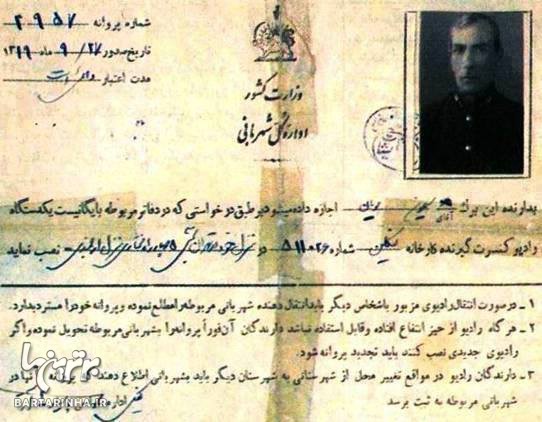 شماره پروانه ۲۹۵۷
تاریخ صدور ۲۷/ ۹ ماه ۱۳۱۹
مدت اعتبار
وزارت کشور
اداره کل شهربانی
بدارنده این برگ آقای اجازه داده میشود بر طبق درخواستی که در دفاتر مربوطه بایگانیست یکدستگاه
رادیو کنسرت گیرنده کارخانه شماره ۵۱۱۰۲۶ در نصب نماید
۱ ـ در صورت انتقال رادیوی مزبور باشخاص دیگر باید انتقال دهنده شهربانی مربوطه را مطلع نموده و پروانه خود را مسترد بدارد.
۲ ـ هرگاه رادیو از حیز انتفاع افتاده وقابل استفاده نباشد دارندگان آن فوراً پروانه را بشهربانی مربوطه تحویل نموده واگر
رادیوی جدیدی نصب کنند باید تجدید پروانه شود.
۳ ـ دارندگان رادیو در مواقع تغییر محل از شهرستانی به شهرستان دیگر باید بشهربانی اطلاع دهند که پروانه آنها در
شهربانی مربوطه به ثبت برسد
اداره
برترینها
BARTARINHA.IR